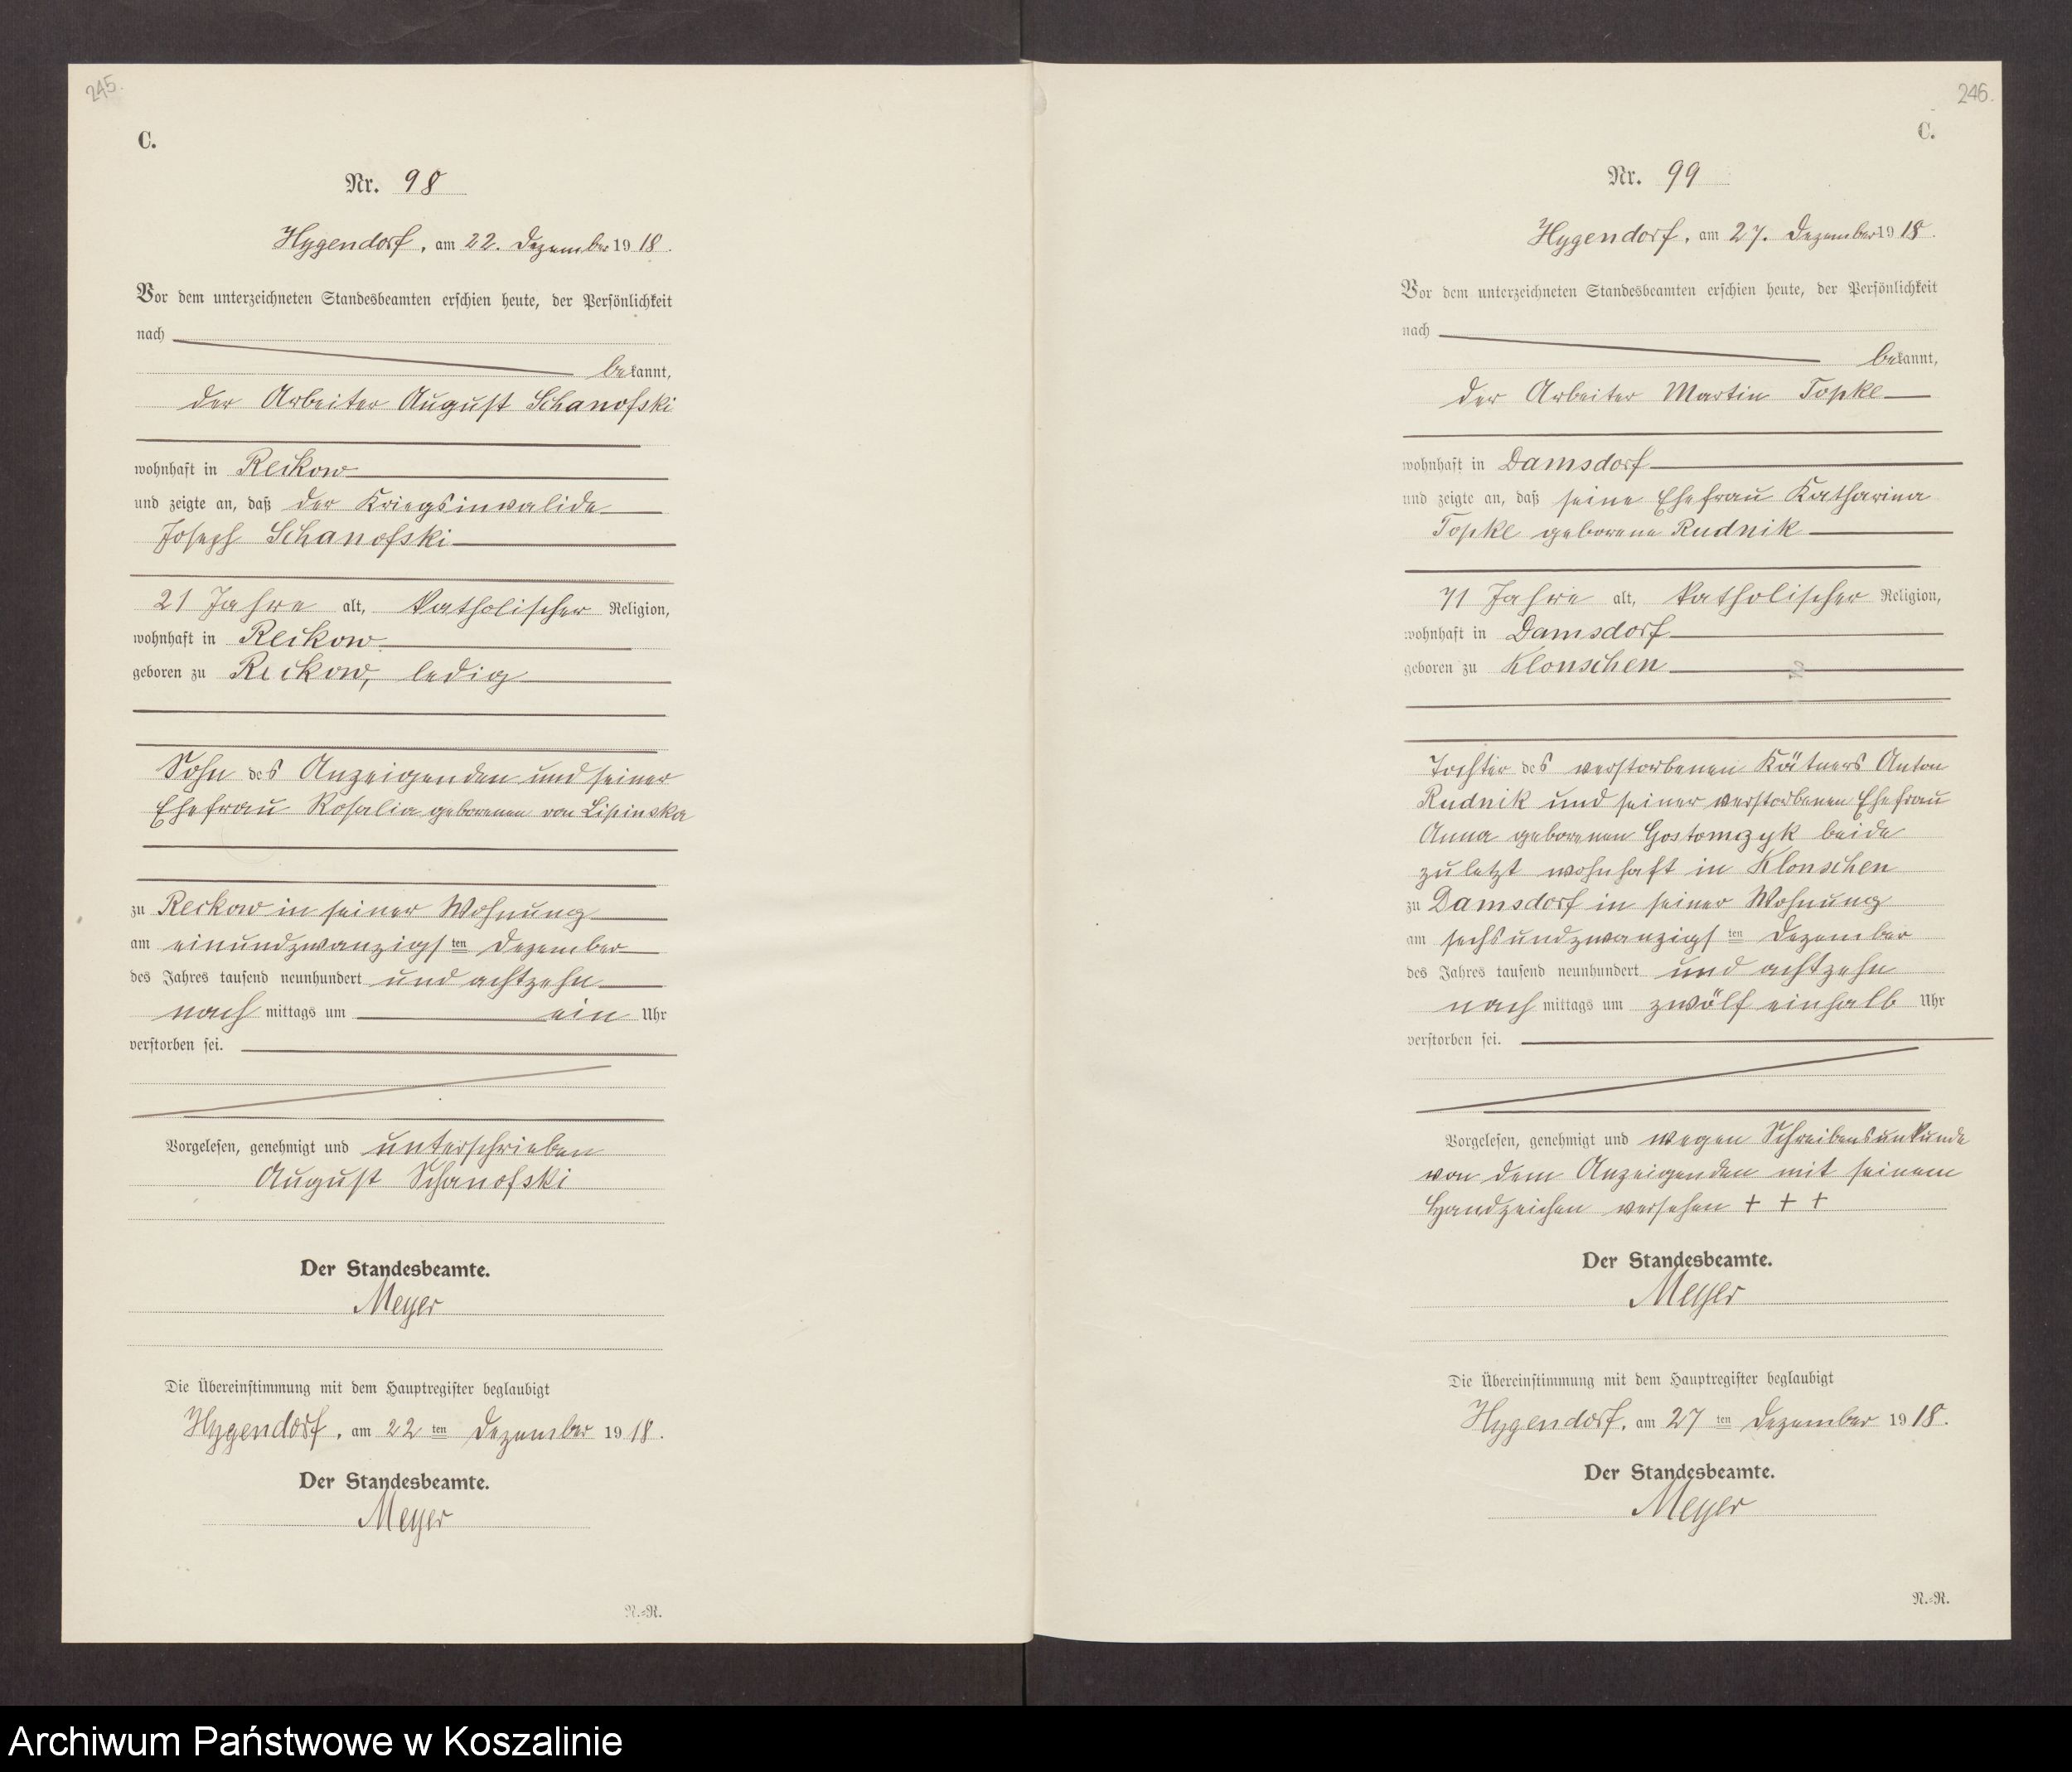 245.
C.
Nr. 98
Hygendorf, am 22. Dezember 1918.
Vor dem unterzeichneten Standesbeamten erschien heute, der Persönlichkeit
nach
bekannt,
der Arbeiter August Schanofski
wohnhaft in Reckow
und zeigte an, daß der Kriegsinvalide
Joseph Schanofski
21 Jahre alt, katholischer Religion,
wohnhaft in Reckow
geboren zu Reckow, ledig
Sohn des Anzeigenden und seiner
Ehefrau Rosalia geborenen von Lipinska
zu Reckow in seiner Wohnung
am einundzwanzigsten Dezember
des Jahres tausend neunhundert und achtzehn
nachmittags um ein Uhr
verstorben sei.
Vorgelesen, genehmigt und unterschrieben
August Schanofski
Der Standesbeamte.
Meyer
Die Übereinstimmung mit dem Hauptregister beglaubigt
Hygendorf, am 22ten Dezember 1918.
Der Standesbeamte.
Meyer
N.-R.
246.
C.
Nr. 99
Hygendorf, am 27. Dezember 1918.
Vor dem unterzeichneten Standesbeamten erschien heute, der Persönlichkeit
nach
bekannt,
der Arbeiter Martin Topke
wohnhaft in Damsdorf
und zeigte an, daß seine Ehefrau Katharina
Topke geborene Rudnik
71 Jahre alt, katholischer Religion,
wohnhaft in Damsdorf
geboren zu Klonschen
Tochter des verstorbenen Kätners Anton
Rudnik und seiner verstorbenen Ehefrau
Anna geborenen Gostomzyk beide
zuletzt wohnhaft in Klonschen
zu Damsdorf in seiner Wohnung
am sechsundzwanzigsten Dezember
des Jahres tausend neunhundert und achtzehn
nachmittags um zwölf einhalb Uhr
verstorben sei.
Vorgelesen, genehmigt und wegen Schreibensunkunde
von dem Anzeigenden mit seinem
Handzeichen versehen + + +
Der Standesbeamte.
Meyer
Die Übereinstimmung mit dem Hauptregister beglaubigt
Hygendorf, am 27ten Dezember 1918.
Der Standesbeamte.
Meyer
N.-R.
Archiwum Państwowe w Koszalinie